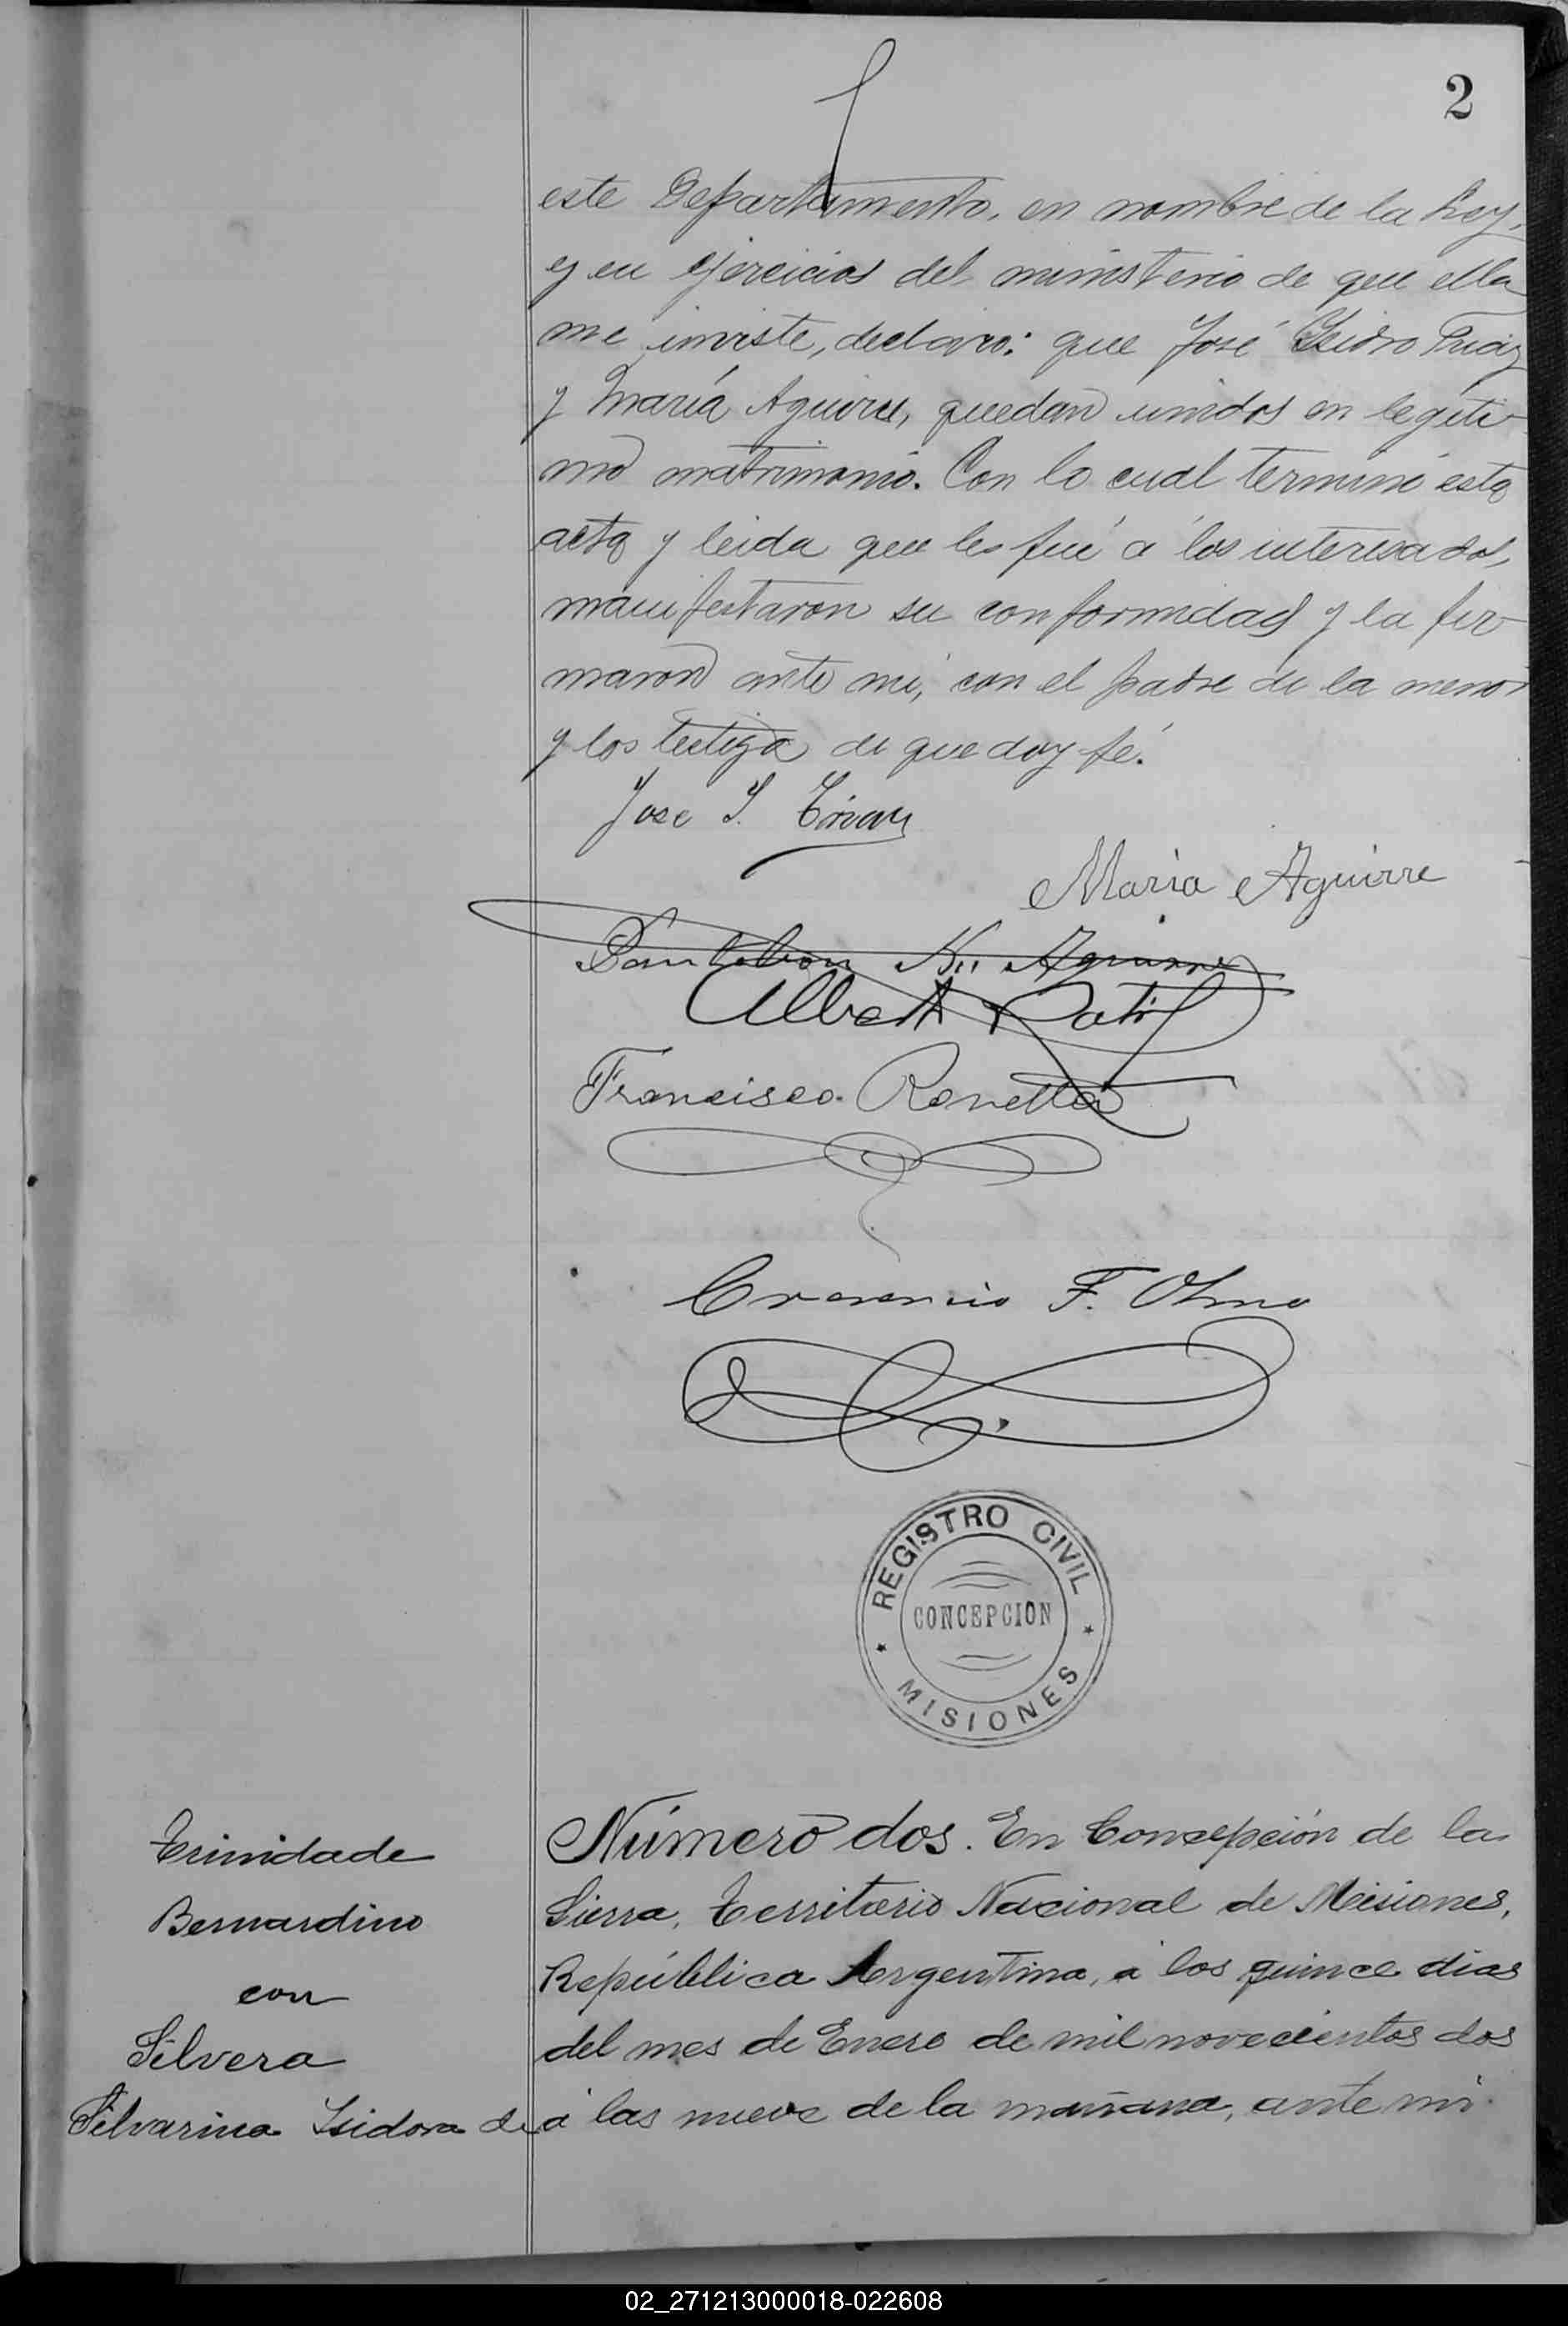 2
este Departamento, en nombre de la Ley,
y en ejercicios del ministerio de que ella
me inviste, declaro: que José Isidro
y María Aguirre, quedan unidos en legíti-
mo matrimonio. Con lo cual terminó esta
acta y leida que les fué á los interesados,
manifestaron su conformidad y la fir-
maron ante mi, con el padre de la menor
y los testigos de que doy fé.
Jose I.
Maria Aguirre
Pantaleon N. Aguirre
Francisco
F. Olmo
REGISTRO CIVIL
CONCEPCION
MISIONES
Trinidade
Bernardino
con
Silvera
Silvarina Isidora de
Número dos. En Concepción de la
Sierra, Territorio Nacional de Misiones,
República Argentina, á los quince dias
del mes de Enero de mil novecientos dos
á las nueve de la mañana, ante mi
02_271213000018-022608